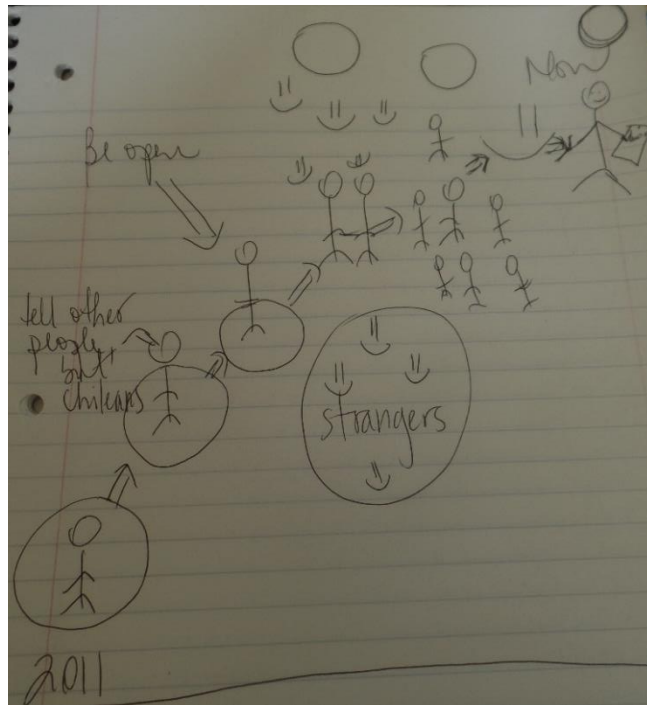 Now
Be open
tell other
people
but
chileans
strangers
2011